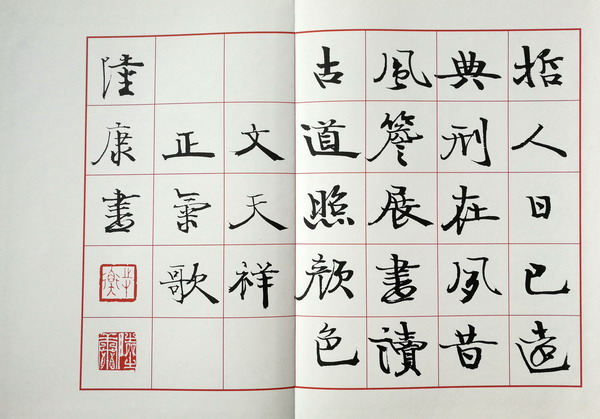 哲人日已遠
典刑在夙昔
風簷展書讀
古道照顏色
文天祥
正氣歌
陸康書
陸康